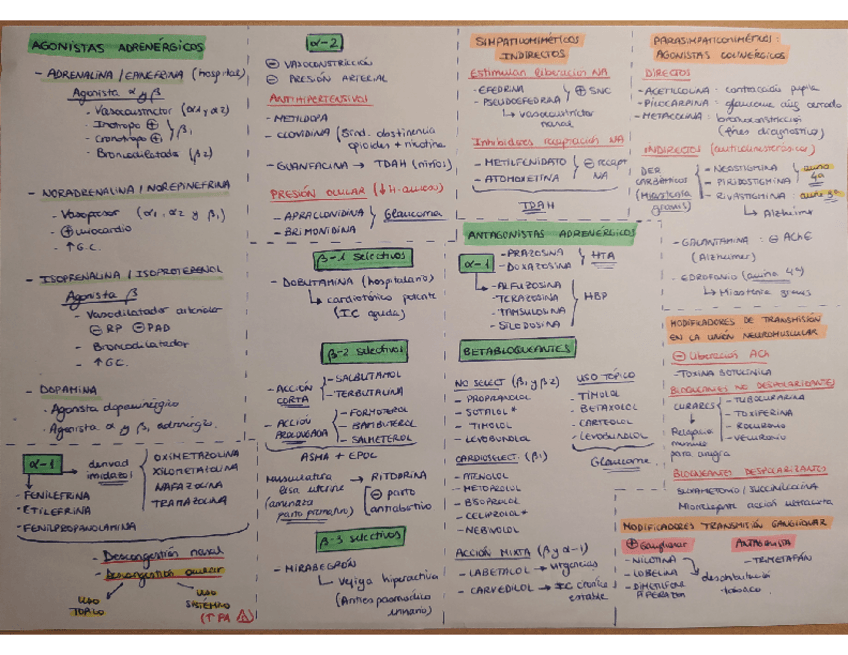 AGONISTAS ADRENÉRGICOS
- ADRENALINA / EPINEFRINA (hospital)
Agonista α y β
- Vasoconstrictor (α1 y α2)
- Inotropo ⊕
- Cronotropo ⊕ } β1
- Broncodilatador (β2)
- NORADRENALINA / NOREPINEFRINA
- Vasopresor (α1, α2 y β1)
- ⊕ miocardio
- ↑ G.C.
- ISOPRENALINA / ISOPROTERENOL
Agonista β
- Vasodilatador arteriolar
⊖ RP ⊖ PAD
- Broncodilatador
- ↑ GC.
- DOPAMINA
- Agonista dopaminérgico
- Agonista α y β1 adrenérgico.
α-1
→ derivad imidazol
OXIMETAZOLINA
XILOMETAZOLINA
NAFAZOLINA
TRAMAZOLINA
- FENILEFRINA
- ETILEFRINA
- FENILPROPANOLAMINA
- Descongestión nasal
- Descongestión ocular
USO TÓPICO
USO SISTÉMICO
(↑ PA ⚠)
α-2
⊖ VASOCONSTRICCIÓN
⊖ PRESIÓN ARTERIAL
ANTIHIPERTENSIVOS
- METILDOPA
- CLONIDINA (Sínd. abstinencia
opioides + nicotina
- GUANFACINA → TDAH (niños)
PRESIÓN OCULAR (↓ H. acuoso)
- APRACLONIDINA
- BRIMONIDINA } Glaucoma
β-1 selectivos
- DOBUTAMINA (hospitalario)
↳ cardiotónico potente
(IC aguda)
β-2 selectivos
- ACCIÓN CORTA
- SALBUTAMOL
- TERBUTALINA
- ACCIÓN PROLONGADA
- FORMOTEROL
- BAMBUTEROL
- SALMETEROL
ASMA + EPOC
Musculatura lisa uterina → RITODRINA
(amenaza parto prematuro)
⊖ parto
antiabortivo
β-3 selectivos
- MIRABEGRÓN
↳ Vejiga hiperactiva
(Antiespasmódico
urinario)
SIMPATICOMIMÉTICOS
INDIRECTOS
Estimulan liberación NA
- EFEDRINA
- PSEUDOEFEDRINA } ⊕ SNC
↳ vasoconstrictor
nasal
Inhibidores recaptación NA
- METILFENIDATO
- ATOMOXETINA } ⊖ recapt NA
TDAH
ANTAGONISTAS ADRENÉRGICOS
α-1
- PRAZOSINA
- DOXAZOSINA } HTA
- ALFUZOSINA
- TERAZOSINA
- TAMSULOSINA
- SILODOSINA } HBP
BETABLOQUEANTES
NO SELECT (β1 y β2)
- PROPRANOLOL
- SOTALOL *
- TIMOLOL
- LEVOBUNOLOL
USO TÓPICO
- TIMOLOL
- BETAXOLOL
- CARTEOLOL
- LEVOBUNOLOL
Glaucoma
CARDIOSELECT. (β1)
- ATENOLOL
- METOPROLOL
- BISOPROLOL
- CELIPROLOL *
- NEBIVOLOL
ACCIÓN MIXTA (β y α-1)
- LABETALOL → urgencias
- CARVEDILOL → IC crónica
estable
PARASIMPATICOMIMÉTICOS:
AGONISTAS COLINÉRGICOS
DIRECTOS
- ACETILCOLINA: contracción pupila
- PILOCARPINA: glaucoma áng cerrado
- METACOLINA: broncoconstricción
(fines diagnóstico)
INDIRECTOS (anticolinesterásicos)
DER CARBÁMICOS
(Miastenia gravis)
- NEOSTIGMINA
- PIRIDOSTIGMINA } amino 4ª
- RIVASTIGMINA: amina 3ª
↳ Alzheimer
- GALANTAMINA: ⊖ AChE
(Alzheimer)
- EDROFONIO (amina 4ª)
↳ Miastenia gravis
MODIFICADORES DE TRANSMISIÓN
EN LA UNIÓN NEUROMUSCULAR
⊖ Liberación ACh
- TOXINA BOTULÍNICA
BLOQUEANTES NO DESPOLARIZANTES
CURARES
- TUBOCURARINA
- TOXIFERINA
- ROCURONIO
- VECURONIO
Relajación
para cirugía
BLOQUEANTES DESPOLARIZANTES
SUXAMETONIO / SUCCINILCOLINA
Miorrelajante acción ultracorta
MODIFICADORES TRANSMISIÓN GANGLIONAR
⊕ Ganglionar
- NICOTINA
- LOBELINA
- DIMETILFENIL
PIPERAZON
deshabituación
tabaco
ANTAGONISTA
- TRIMETAFÁN